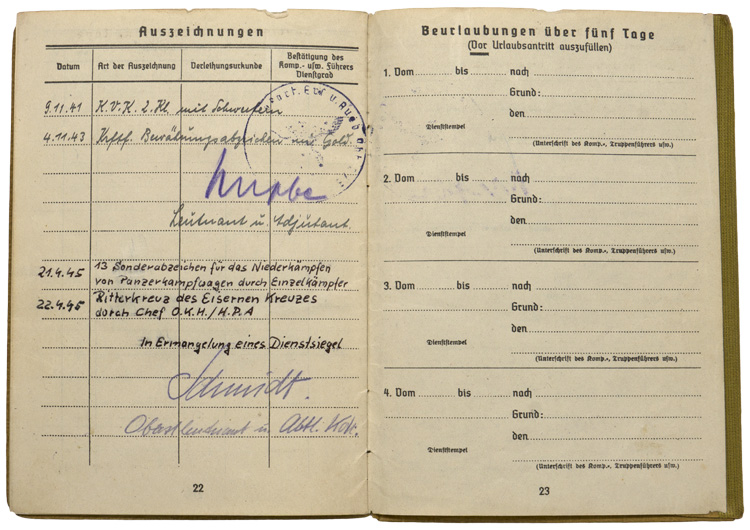 Auszeichnungen
Datum
Art der Auszeichnung
Verleihungsurkunde
Bestätigung des
Komp.- usw. Führers
Dienstgrad
9.11.41 K.V.K. 2. Kl. mit Schwertern
4.11.43 Krftf. Bewährungsabzeichen in Gold.
Leutnant u. Adjutant.
21.4.45 13 Sonderabzeichen für das Niederkämpfen
von Panzerkampfwagen durch Einzelkämpfer
22.4.45 Ritterkreuz des Eisernen Kreuzes
dorch Chef O.K.H./H.P.A
In Ermangelung eines Dienstsiegel
Schmidt.
Oberstleutnant u. Abtl. Kdr.
22
Beurlaubungen über fünf Tage
(Vor Urlaubsantritt auszufüllen)
1. Vom bis nach
Grund:
den
Dienststempel
(Unterschrift des Komp.-, Truppenführers usw.)
2. Vom bis nach
Grund:
den
Dienststempel
(Unterschrift des Komp.-, Truppenführers usw.)
3. Vom bis nach
Grund:
den
Dienststempel
(Unterschrift des Komp.-, Truppenführers usw.)
4. Vom bis nach
Grund:
den
Dienststempel
(Unterschrift des Komp.-, Truppenführers usw.)
23